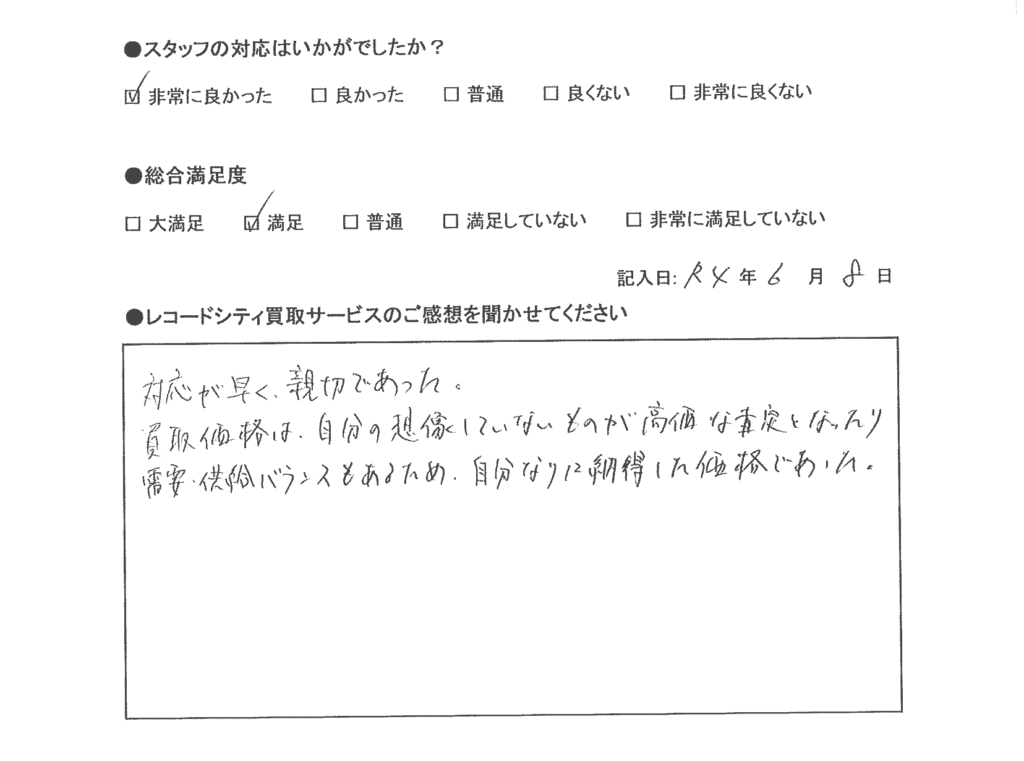 ●スタッフの対応はいかがでしたか？
☑ 非常に良かった □ 良かった □ 普通 □ 良くない □ 非常に良くない
●総合満足度
□ 大満足 ☑ 満足 □ 普通 □ 満足していない □ 非常に満足していない
記入日: R4 年 6 月 8 日
●レコードシティ買取サービスのご感想を聞かせてください
対応が早く、親切であった。
買取価格は、自分の想像していないものが高価な査定となったり
需要・供給バランスもあるため、自分なりに納得した価格であった。